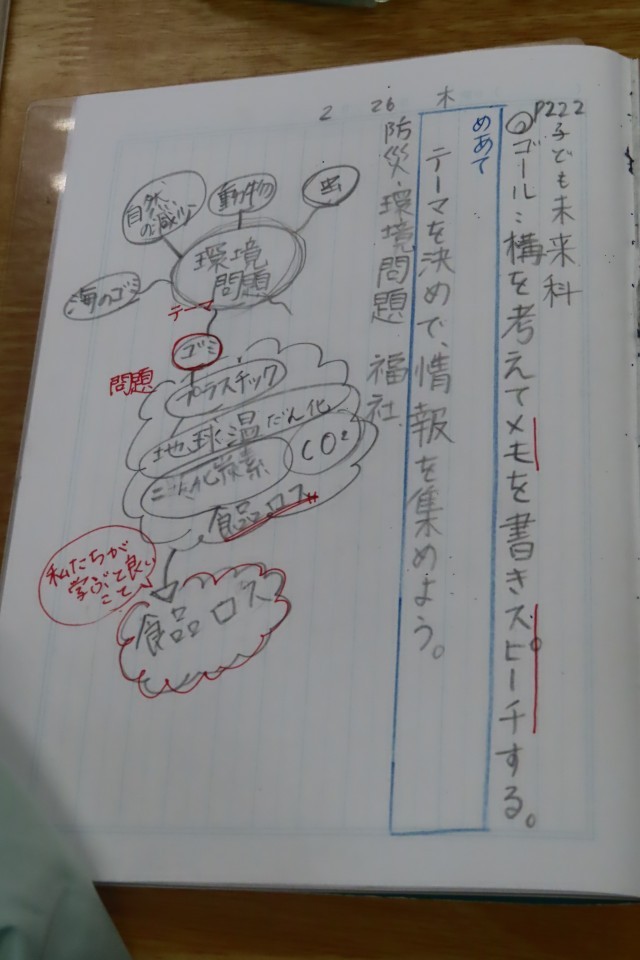 P222子ども未来科
ゴール:構を考えてメモを書きスピーチする。
めあて
テーマを決めて、情報を集めよう。
2 26 木
防災・環境問題 福祉
環境問題
虫
動物
自然の減少
海のゴミ
テーマ
ゴミ
問題
プラスチック
地球温だん化
CO2
二酸化炭素
食品ロス
私たちが
学ぶと良い
こと
食品ロス